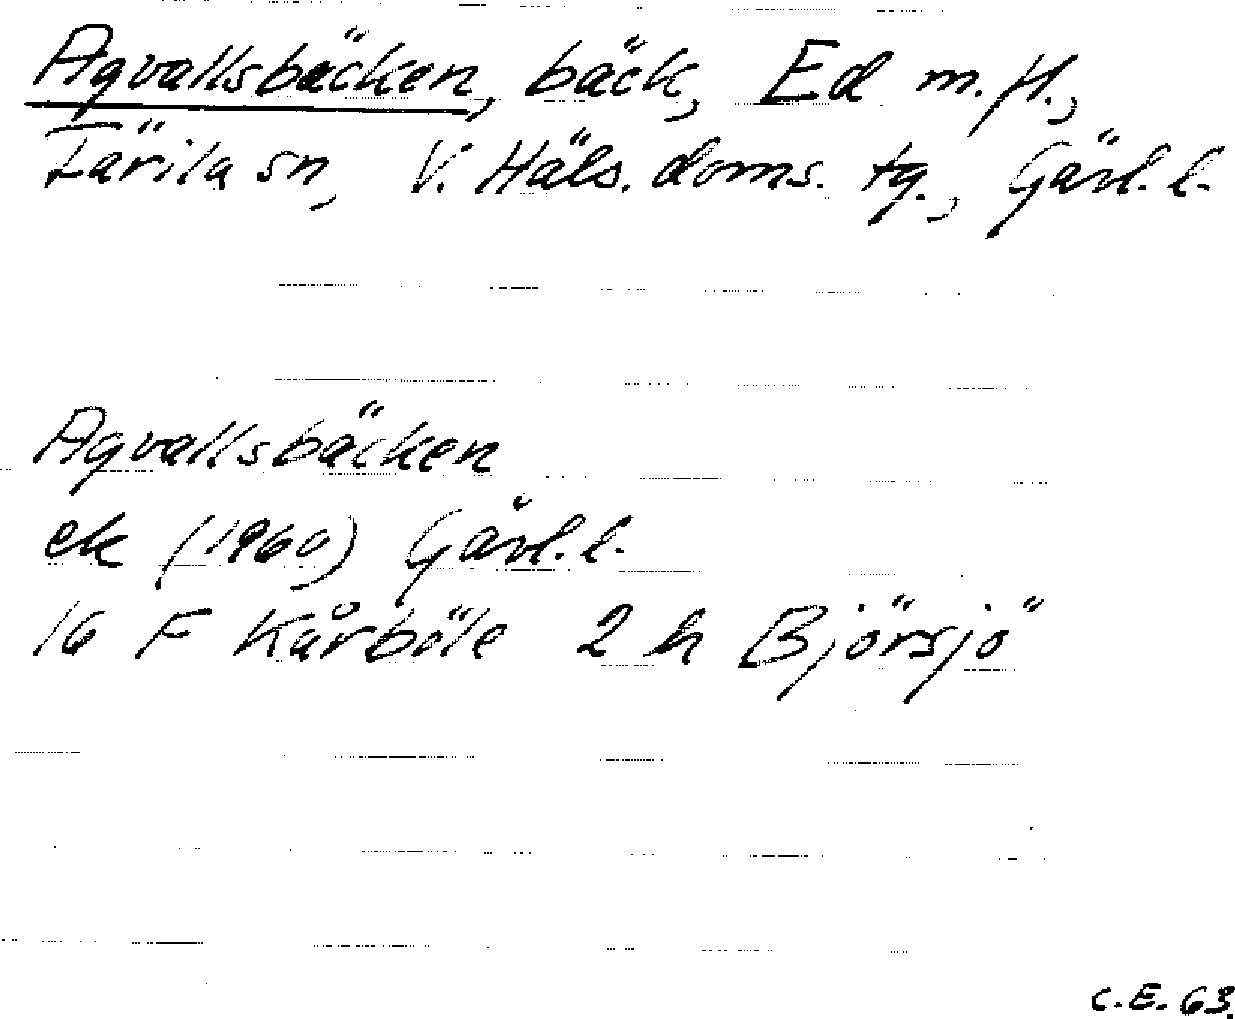 Aqvallsbäcken, bäck, Ed m.fl.,
Färila sn, V. Häls. doms. tg., Gävl. l.
Aqvallsbäcken
ek (1960) Gävl. l.
16 F Kårböle 2 h Björsjö
C.E. 63.